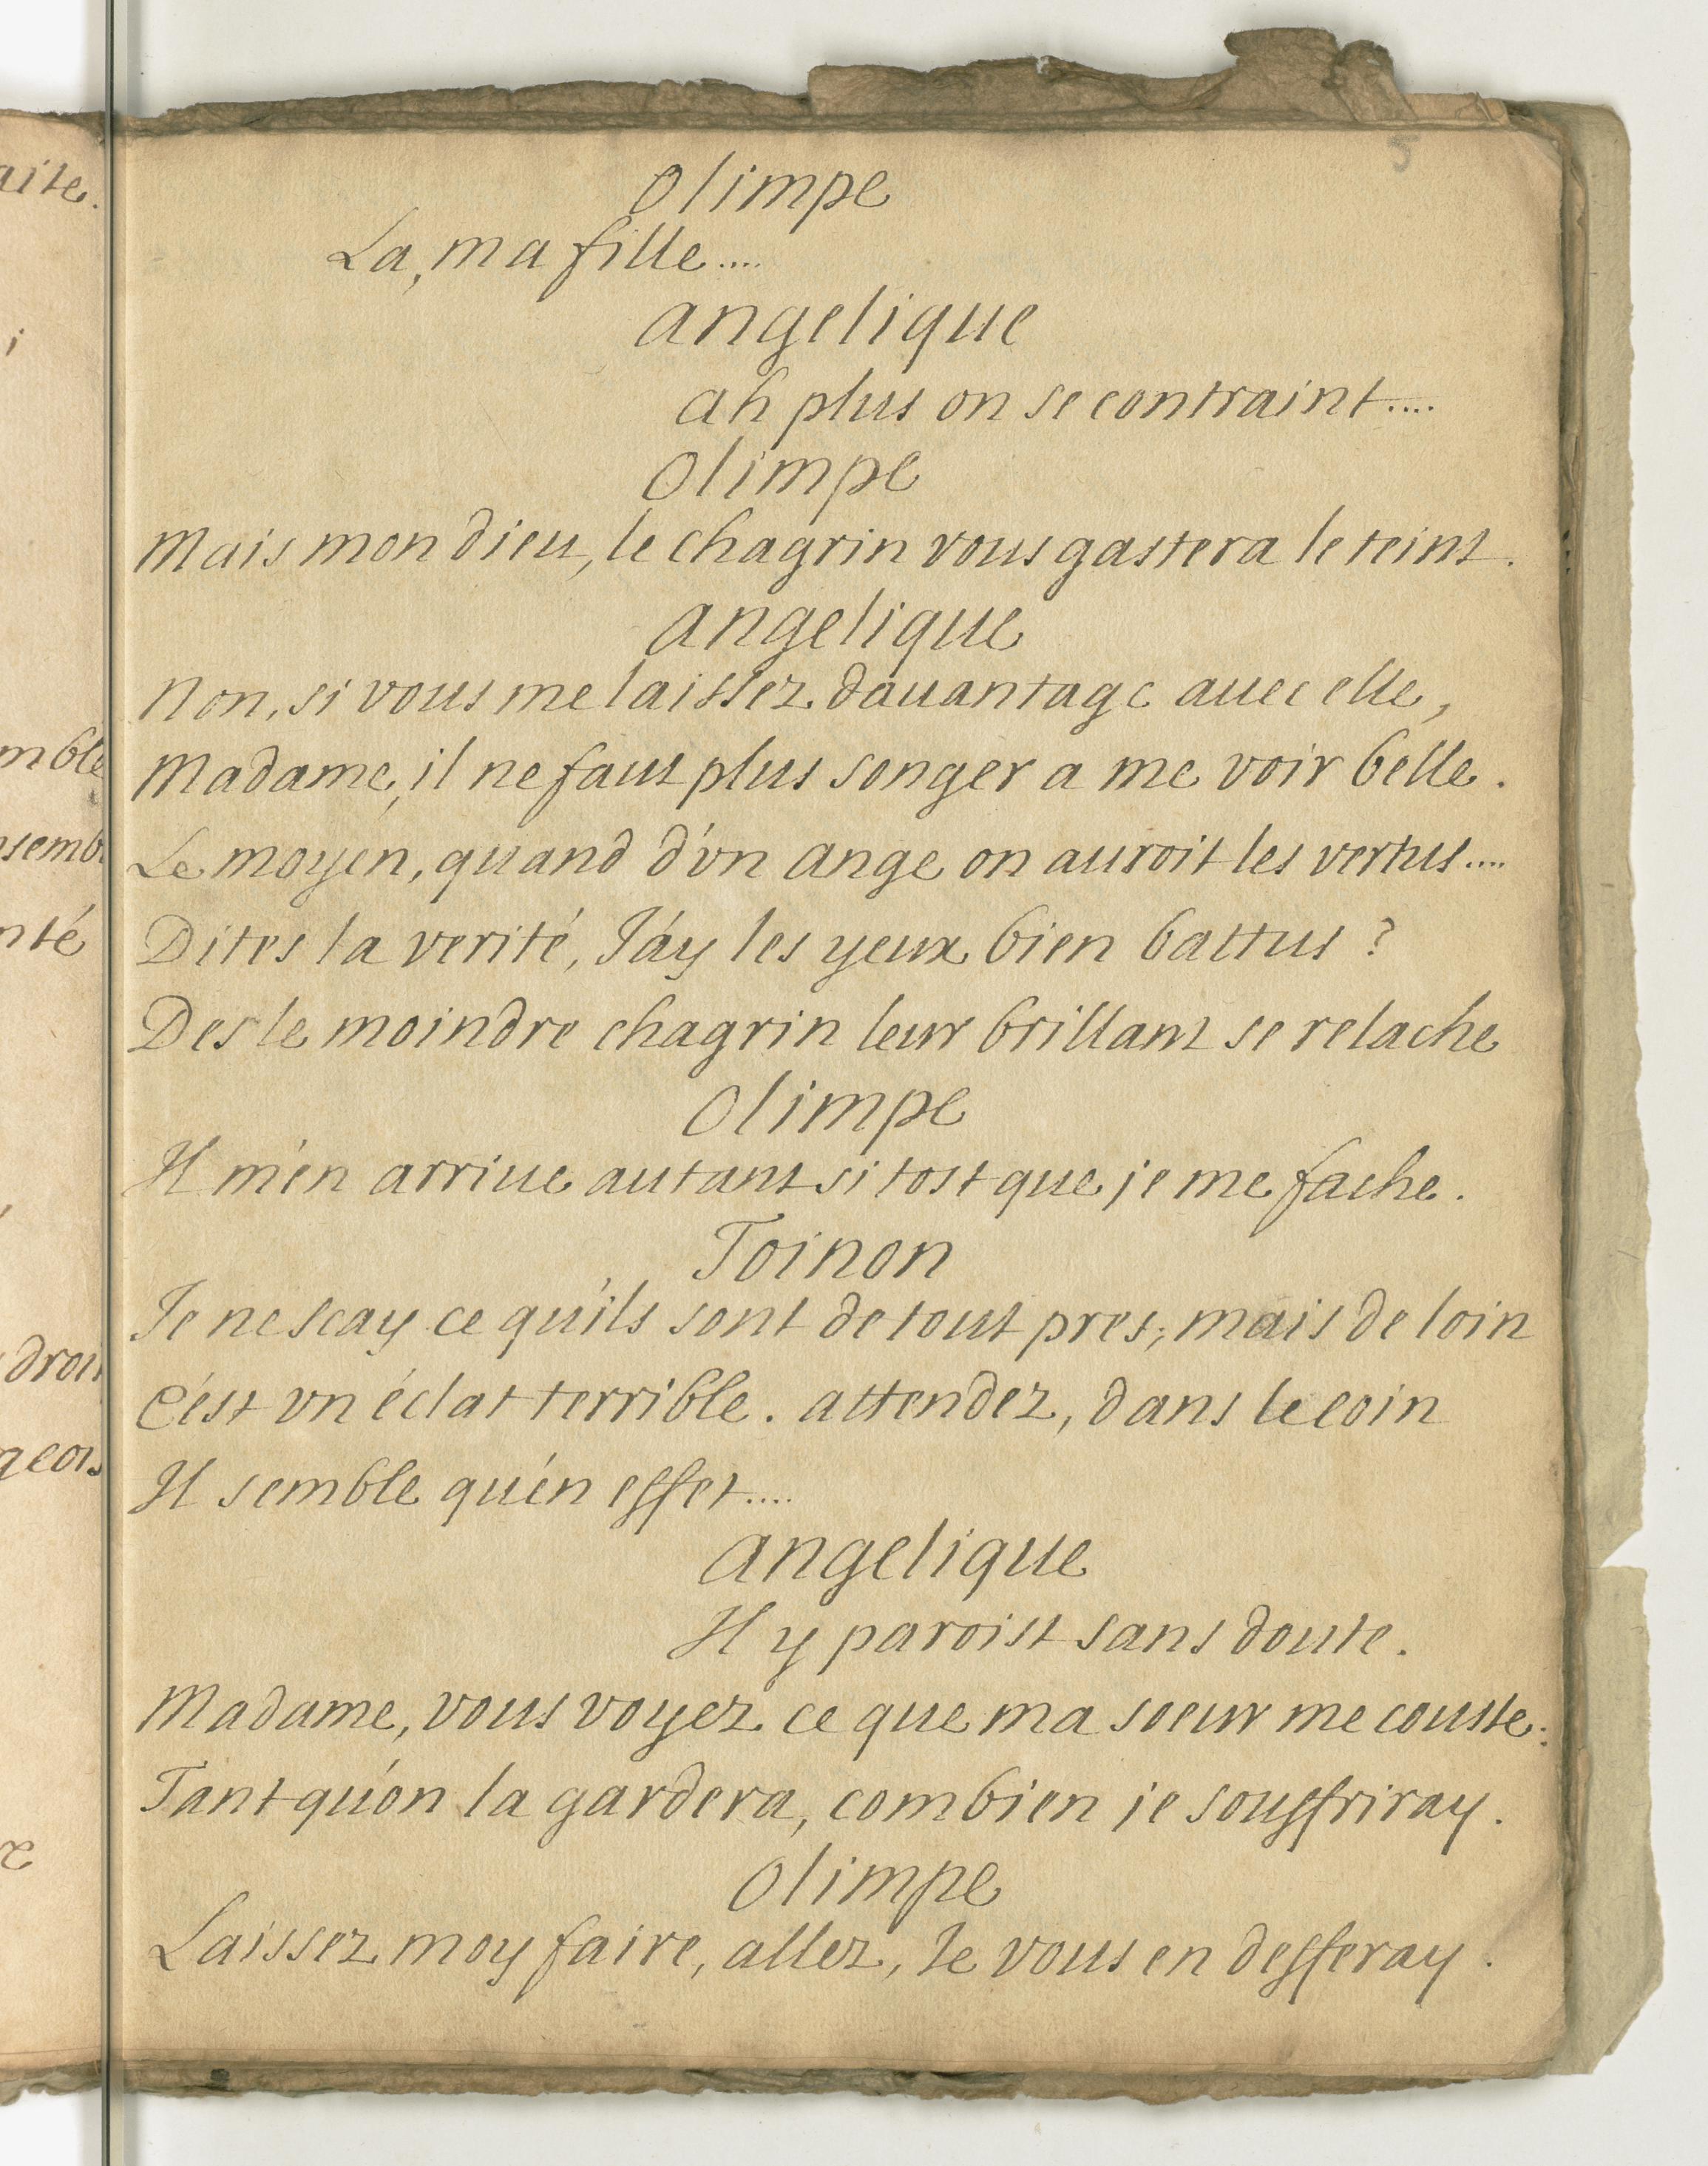 5
Olimpe
La, ma fille....
angelique
ah plus on se contraint....
Olimpe
Mais mon dieu, le chagrin vous gastera le teint.
angelique
Non, si vous me laissez dauantage auec elle,
Madame, il ne faut plus songer a me voir belle.
Le moyen, quand d'vn ange on auroit les vertus....
Dites la verité, J'ay les yeux bien battus ?
Des le moindre chagrin leur brillant se relache
Olimpe
Il m'en arriue autant si tost que je me fache.
Toinon
Je ne scay ce qu'ils sont de tout pres; mais de loin
C'est vn éclat terrible. attendez, dans le coin
Il semble qu'en effet....
angelique
Il y paroist sans doute.
Madame, vous voyez ce que ma soeur me couste:
Tant qu'on la gardera, combien je souffriray.
Olimpe
Laissez moy faire, allez, Je vous en defferay.
aite.
i
mble
nsemb
nté
droit
geois
x